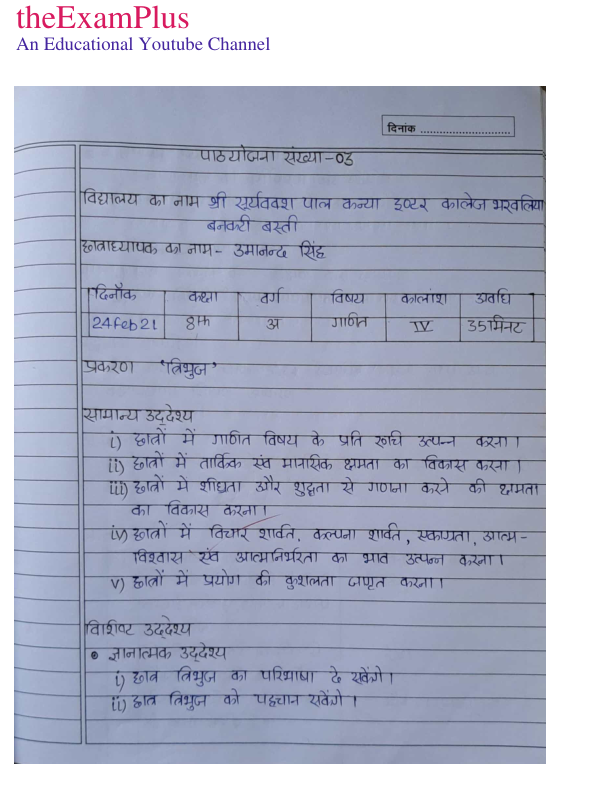 theExamPlus
An Educational Youtube Channel
दिनांक ..............................
पाठयोजना संख्या-03
विद्यालय का नाम श्री सूर्यबक्श पाल कन्या इण्टर कालेज भरवलिया
बनकटी बस्ती
छात्राध्यापक का नाम- उमानन्द सिंह
दिनाँक कक्षा वर्ग विषय कालांश अवधि
24Feb21 8th अ गणित IV 35मिनट
प्रकरण 'त्रिभुज'
सामान्य उद्देश्य
i) छात्रों में गणित विषय के प्रति रूचि उत्पन्न करना।
ii) छात्रों में तार्किक एंव मानसिक क्षमता का विकास करना।
iii) छात्रों में शीघ्रता और शुद्धता से गणना करने की क्षमता
का विकास करना।
iv) छात्रों में विचार शक्ति, कल्पना शक्ति, एकाग्रता, आत्म-
विश्वास एंव आत्मनिर्भरता का भाव उत्पन्न करना।
v) छात्रों में प्रयोग की कुशलता जागृत करना।
विशिष्ट उद्देश्य
• ज्ञानात्मक उद्देश्य
i) छात्र त्रिभुज का परिभाषा दे सकेंगे।
ii) छात्र त्रिभुज को पहचान सकेंगे।